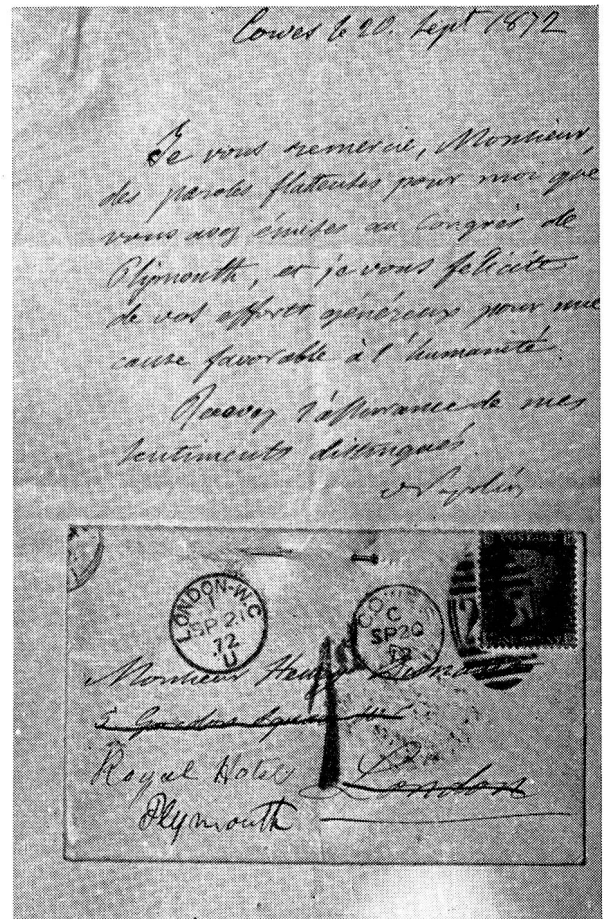 Cowes le 20. Sept 1872
Je vous remercie, Monsieur,
des paroles flatteuses pour moi que
vous avez émises au Congrès de
Plymouth, et je vous felicite
de vos efforts généreux pour une
cause favorable à l'humanité.
Recevez l'assurance de mes
sentiments distingués.
Napoléon
LONDON-W.C
SP 21
72
U
COWES
C
SP 20
72
POSTAGE
Monsieur Henry
5 Gordon Square
Royal Hotel London
Plymouth